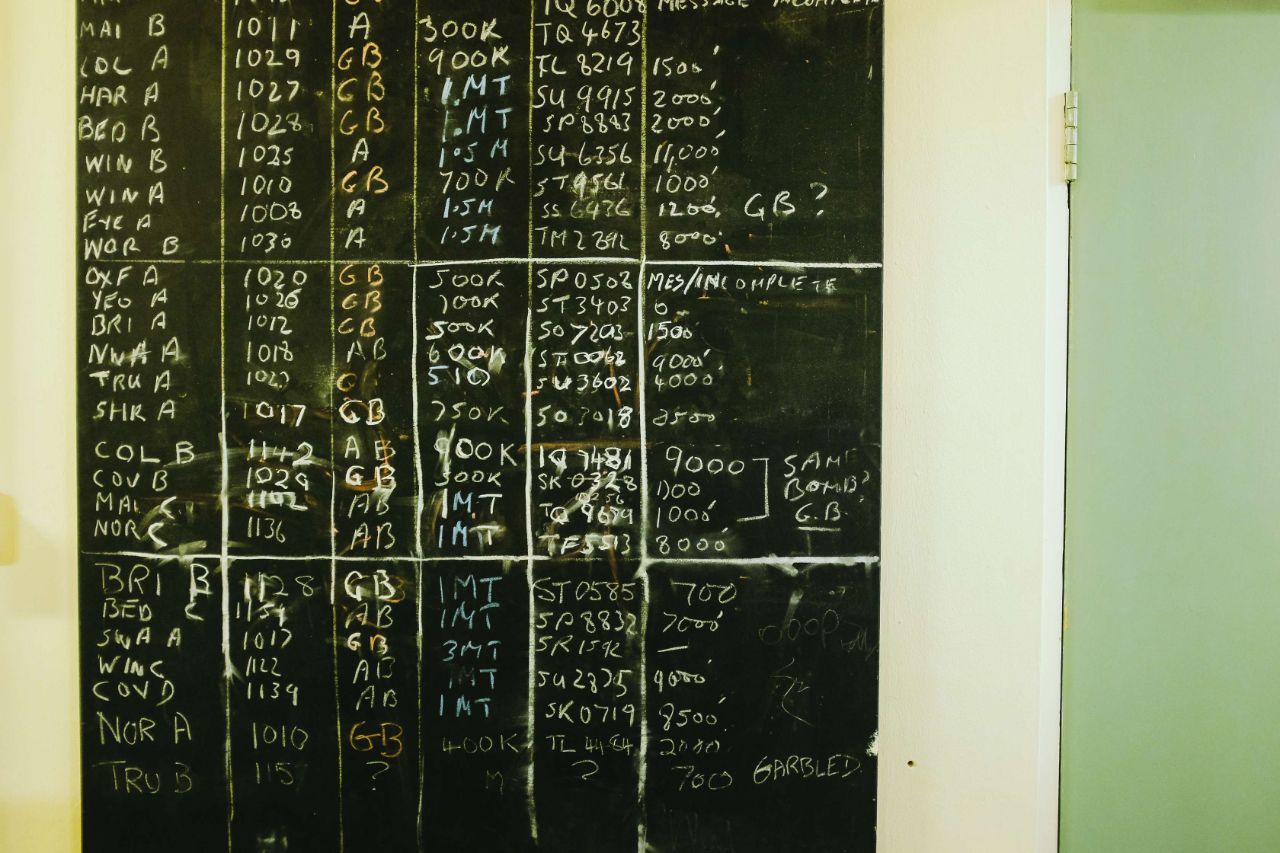 TQ 6008 MESSAGE INCOMPLETE
MAI B 1011 A 300K TQ 4673
COL A 1029 GB 900K TL 8219 1500'
HAR A 1027 GB 1.MT SU 9915 2000'
BED B 1028 GB 1.MT SP 8883 2000'
WIN B 1025 A 1.5 M SU 6356 11,000'
WIN A 1010 GB 700K ST 9561 1000'
EYE A 1008 A 1.5M SS 6436 1200' GB?
WOR B 1030 A 1.5M TM 2892 8000'
OXF A 1020 GB 500K SP 0508 MES/INCOMPLETE
YEO A 1026 GB 700K ST 3403 0
BRI A 1012 GB 500K SO 7203 1500'
NWA A 1018 AB 600K ST 0068 9000'
TRU A 102 G 510 SU 3602 4000'
SHR A 1017 GB 750K SO 3018 2500'
COL B 1142 AB 900K TQ 7481 9000 SAME
COV B 1029 GB 500K SK 0328 1700 BOMB?
MAI C 1102 AB 1MT TQ 8679 1000' G.B.
NOR C 1136 AB 1MT TF 5513 8000'
BRI B 1128 GB 1MT ST 0585 700
BED C 1154 AB 1MT SP 8832 7000'
SWA A 1017 GB 3MT SR 1592 —
WIN C 1122 AB 1MT SU 2875 9000'
COV D 1139 AB 1MT SK 0719 8500'
NOR A 1010 GB 400K TL 4484 2000
TRU B 115 ? M ? 700 GARBLED